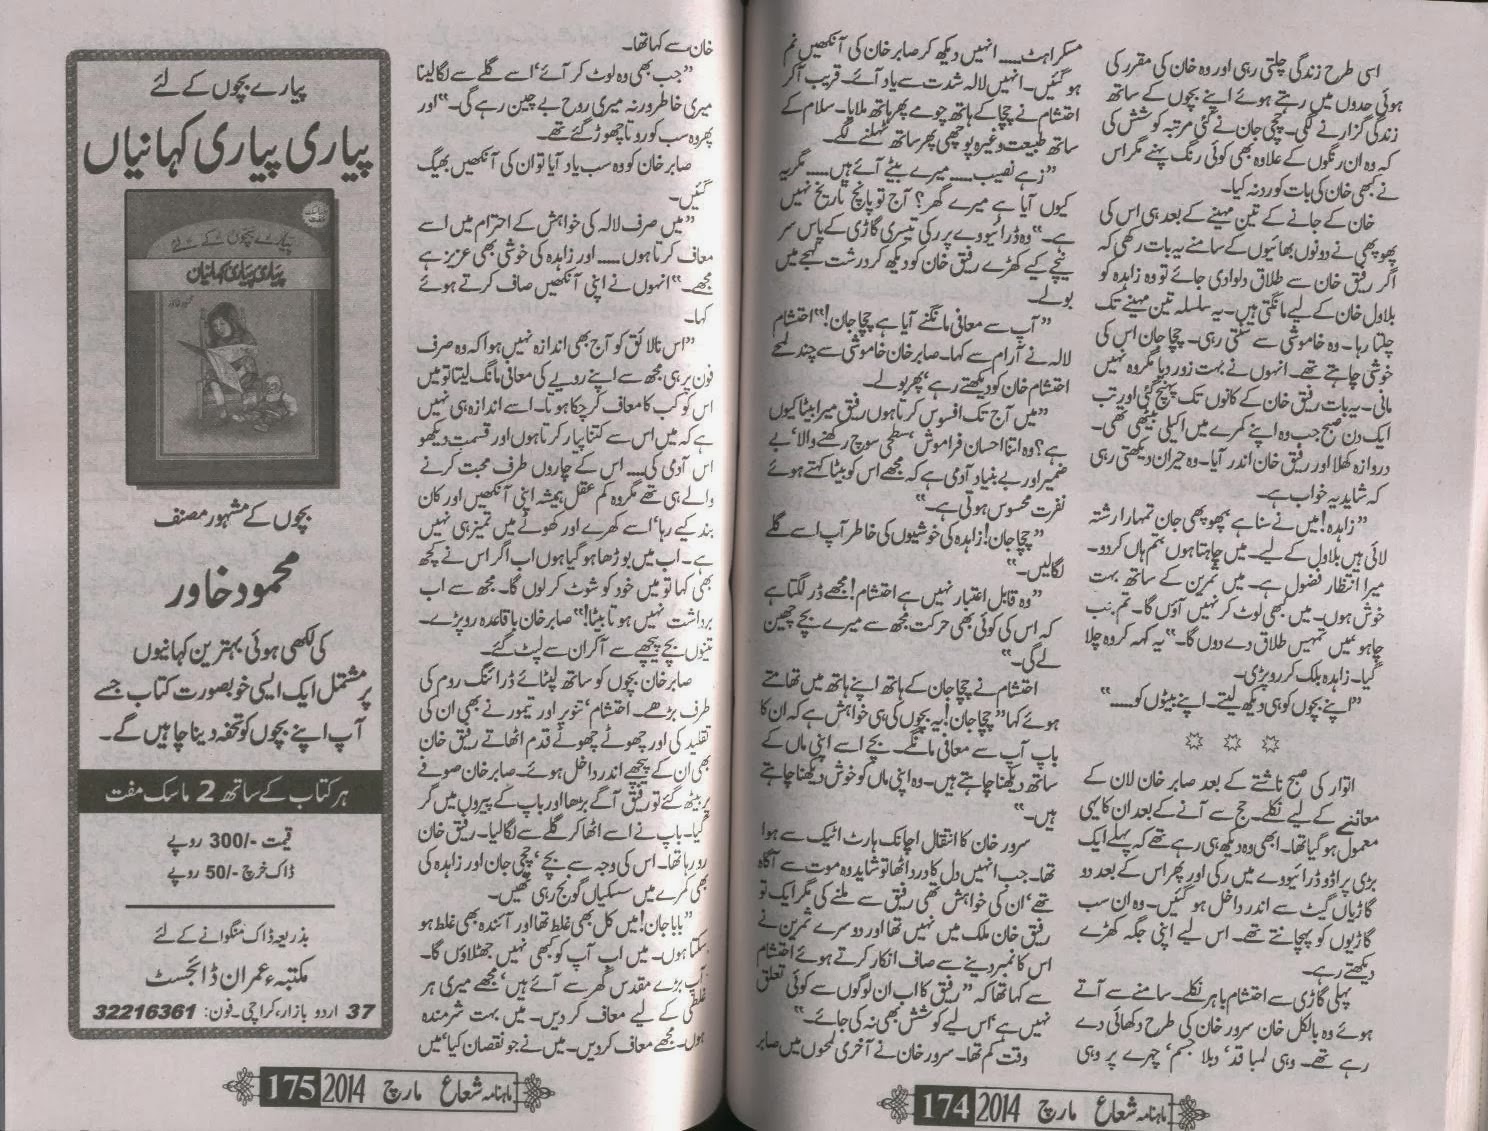 اسی طرح زندگی چلتی رہی اور وہ خان کی مقرر کی
ہوئی حدوں میں رہتے ہوئے اپنے بچوں کے ساتھ
زندگی گزارنے لگی۔ چچی جان نے کئی مرتبہ کوشش کی
کہ وہ ان رنگوں کے علاوہ بھی کوئی رنگ پہنے مگر اس
نے کبھی خان کی بات کو رد نہ کیا۔
خان کے جانے کے تین مہینے کے بعد ہی اس کی
پھوپھی نے دونوں بھائیوں کے سامنے یہ بات رکھی کہ
اگر رفیق خان سے طلاق دلوا دی جائے تو وہ زاہدہ کو
بلاول خان کے لیے مانگتی ہیں۔ یہ سلسلہ تین مہینے تک
چلتا رہا۔ وہ خاموشی سے سنتی رہی۔ چچا جان اس کی
خوشی چاہتے تھے۔ انہوں نے بہت زور دیا مگر وہ نہیں
مانی۔ یہ بات رفیق خان کے کانوں تک پہنچ گئی اور تب
ایک دن صبح جب وہ اپنے کمرے میں اکیلی بیٹھی تھی۔
دروازہ کھلا اور رفیق خان اندر آیا۔ وہ حیران دیکھتی رہی
کہ شاید یہ خواب ہے۔
”زاہدہ! میں نے سنا ہے پھوپھی جان تمہارا رشتہ
لائی ہیں بلاول کے لیے۔ میں چاہتا ہوں تم ہاں کر دو۔
میرا انتظار فضول ہے۔ میں ثمرین کے ساتھ بہت
خوش ہوں۔ میں کبھی لوٹ کر نہیں آؤں گا۔ تم جب
چاہو میں تمہیں طلاق دے دوں گا۔“ یہ کہہ کر وہ چلا
گیا۔ زاہدہ بلک کر رو پڑی۔
”اپنے بچوں کو ہی دیکھ لیتے۔ اپنے بیٹوں کو.....“
اتوار کی صبح ناشتے کے بعد صابر خان لان کے
معائنے کے لیے نکلے۔ حج سے آنے کے بعد ان کا یہی
معمول ہو گیا تھا۔ ابھی وہ دیکھ ہی رہے تھے کہ پہلے ایک
بڑی پراڈو ڈرائیو وے میں رکی اور پھر اس کے بعد دو
گاڑیاں گیٹ سے اندر داخل ہو گئیں۔ وہ ان سب
گاڑیوں کو پہچانتے تھے۔ اس لیے اپنی جگہ کھڑے
دیکھتے رہے۔
پہلی گاڑی سے احتشام باہر نکلے۔ سامنے سے آتے
ہوئے وہ بالکل خان سرور خان کی طرح دکھائی دے
رہے تھے۔ وہی لمبا قد، دبلا جسم، چہرے پر وہی
مسکراہٹ..... انہیں دیکھ کر صابر خان کی آنکھیں نم
ہو گئیں۔ انہیں لالہ شدت سے یاد آئے۔ قریب آ کر
احتشام نے چچا کے ہاتھ چومے پھر ہاتھ ملایا۔ سلام کے
ساتھ طبیعت وغیرہ پوچھی پھر ساتھ ٹہلنے لگے۔
”زہے نصیب..... میرے بیٹے آئے ہیں..... مگر یہ
کیوں آیا ہے میرے گھر؟ آج تو پانچ تاریخ نہیں
ہے۔“ وہ ڈرائیو وے پر رکی تیسری گاڑی کے پاس سر
نیچے کیے کھڑے رفیق خان کو دیکھ کر درشت لہجے میں
بولے۔
”آپ سے معافی مانگنے آیا ہے چچا جان!“ احتشام
لالہ نے آرام سے کہا۔ صابر خان خاموشی سے چند لمحے
احتشام خان کو دیکھتے رہے، پھر بولے۔
”میں آج تک افسوس کرتا ہوں رفیق میرا بیٹا کیوں
ہے؟ وہ اتنا احسان فراموش، سطحی سوچ رکھنے والا، بے
ضمیر اور بے بنیاد آدمی ہے کہ مجھے اس کو بیٹا کہتے ہوئے
نفرت محسوس ہوتی ہے۔“
”چچا جان! زاہدہ کی خوشیوں کی خاطر آپ اسے گلے
لگالیں۔“
”وہ قابل اعتبار نہیں ہے احتشام! مجھے ڈر لگتا ہے
کہ اس کی کوئی بھی حرکت مجھ سے میرے بچے چھین
لے گی۔“
احتشام نے چچا جان کے ہاتھ اپنے ہاتھ میں تھامتے
ہوئے کہا ”چچا جان! یہ بچوں کی ہی خواہش ہے کہ ان کا
باپ آپ سے معافی مانگے۔ بچے اسے اپنی ماں کے
ساتھ دیکھنا چاہتے ہیں۔ وہ اپنی ماں کو خوش دیکھنا چاہتے
ہیں۔“
سرور خان کا انتقال اچانک ہارٹ اٹیک سے ہوا
تھا۔ جب انہیں دل کا درد اٹھا تو شاید وہ موت سے آگاہ
تھے، ان کی خواہش تھی رفیق سے ملنے کی مگر ایک تو
رفیق خان ملک میں نہیں تھا اور دوسرے ثمرین نے
اس کا نمبر دینے سے صاف انکار کرتے ہوئے احتشام
سے کہا تھا کہ ”رفیق کا اب ان لوگوں سے کوئی تعلق
نہیں ہے، اس لیے کوشش بھی نہ کی جائے۔“
وقت کم تھا۔ سرور خان نے آخری لمحوں میں صابر
ماہنامہ شعاع مارچ 2014 174
خان سے کہا تھا۔
”جب بھی وہ لوٹ کر آئے، اسے گلے سے لگا لینا
میری خاطر ورنہ میری روح بے چین رہے گی۔“ اور
پھر وہ سب کو روتا چھوڑ گئے تھے۔
صابر خان کو وہ سب یاد آیا تو ان کی آنکھیں بھیگ
گئیں۔
”میں صرف لالہ کی خواہش کے احترام میں اسے
معاف کرتا ہوں..... اور زاہدہ کی خوشی بھی عزیز ہے
مجھے۔“ انہوں نے اپنی آنکھیں صاف کرتے ہوئے
کہا۔
”اس نالائق کو آج بھی اندازہ نہیں ہوا کہ وہ صرف
فون پر ہی مجھ سے اپنے رویے کی معافی مانگ لیتا تو میں
اس کو کب کا معاف کر چکا ہوتا۔ اسے اندازہ ہی نہیں
ہے کہ میں اس سے کتنا پیار کرتا ہوں اور قسمت دیکھو
اس آدمی کی..... اس کے چاروں طرف محبت کرنے
والے ہی تھے مگر وہ کم عقل ہمیشہ اپنی آنکھیں اور کان
بند کیے رہا، اسے کھرے اور کھوٹے میں تمیز ہی نہیں
ہے۔ اب میں بوڑھا ہو گیا ہوں اب اگر اس نے کچھ
بھی کہا تو میں خود کو شوٹ کر لوں گا۔ مجھ سے اب
برداشت نہیں ہوتا بیٹا!“ صابر خان باقاعدہ رو پڑے۔
تینوں بچے پیچھے سے آ کر ان سے لپٹ گئے۔
صابر خان بچوں کو ساتھ لپٹائے ڈرائنگ روم کی
طرف بڑھے۔ احتشام، تنویر اور تیمور نے بھی ان کی
تقلید کی اور چھوٹے چھوٹے قدم اٹھاتے رفیق خان
بھی ان کے پیچھے اندر داخل ہوئے۔ صابر خان صوفے
پر بیٹھ گئے تو رفیق آگے بڑھا اور باپ کے پیروں میں گر
گیا۔ باپ نے اسے اٹھا کر گلے سے لگا لیا۔ رفیق خان
رو رہا تھا۔ اس کی وجہ سے بچے، چچی جان اور زاہدہ کی
بھی کمرے میں سسکیاں گونج رہی تھیں۔
”بابا جان! میں کل بھی غلط تھا اور آئندہ بھی غلط ہو
سکتا ہوں۔ میں اب آپ کو کبھی نہیں جھٹلاؤں گا۔
آپ بڑے مقدس گھر سے آئے ہیں، مجھے میری ہر
غلطی کے لیے معاف کر دیں۔ میں بہت شرمندہ
ہوں۔ مجھے معاف کر دیں۔ میں نے جو نقصان کیا، میں
پیارے بچوں کے لئے
پیاری پیاری کہانیاں
پیارے بچوں کے لئے
پیاری پیاری کہانیاں
بچوں کے مشہور مصنف
محمود خاور
کی لکھی ہوئی بہترین کہانیوں
پر مشتمل ایک ایسی خوبصورت کتاب جسے
آپ اپنے بچوں کو تحفہ دینا چاہیں گے۔
ہر کتاب کے ساتھ 2 ماسک مفت
قیمت -/300 روپے
ڈاک خرچ -/50 روپے
بذریعہ ڈاک منگوانے کے لئے
مکتبہء عمران ڈائجسٹ
37 اردو بازار، کراچی۔ فون: 32216361
ماہنامہ شعاع مارچ 2014 175